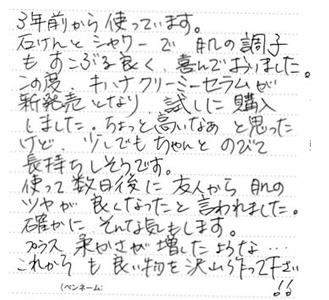 3年前から使っています。
石けんとシャワーで肌の調子
もすこぶる良く、喜んでおりました。
この度 キハナクリーミーセラムが
新発売となり、試しに購入
しました。ちょっと高いなぁと思った
けど、少しでもちゃんとのびて
長持ちしそうです。
使って数日後に友人から肌の
ツヤが良くなったと言われました。
確かにそんな気もします。
プラス柔かさが増したような…
これからも良い物を沢山作って下さい
(ペンネーム: !!